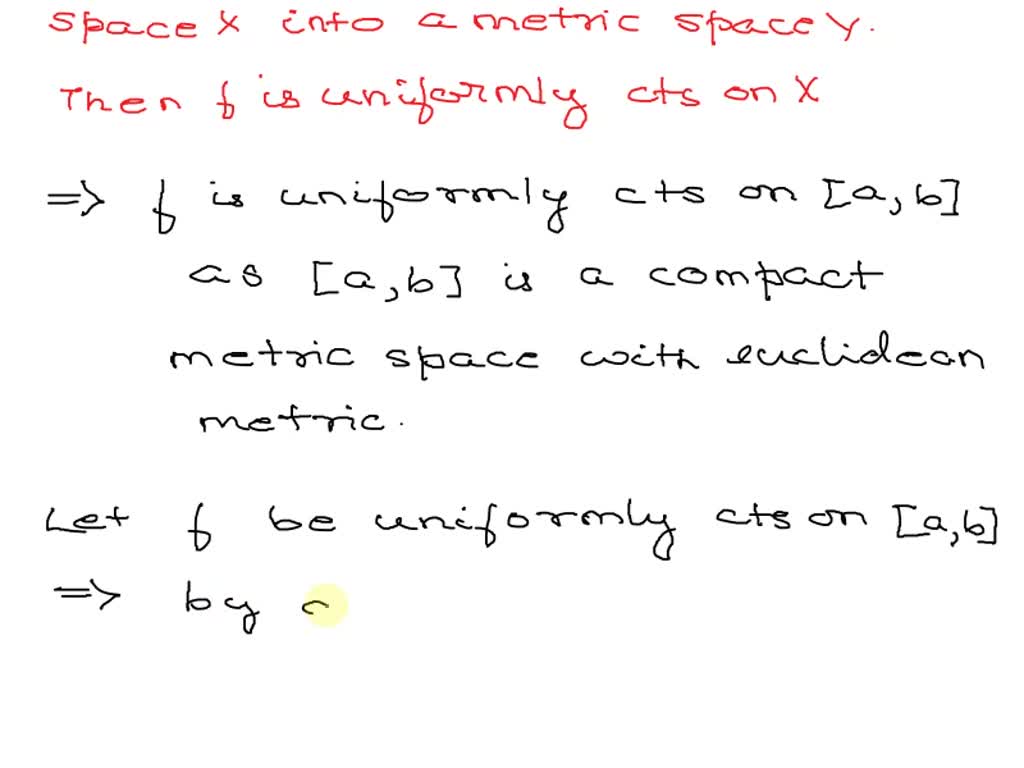 space X into a metric space Y.
Then f is uniformly cts on X
=> f is uniformly cts on [a,b]
as [a,b] is a compact
metric space with euclidean
metric.
Let f be uniformly cts on [a,b]
=> by